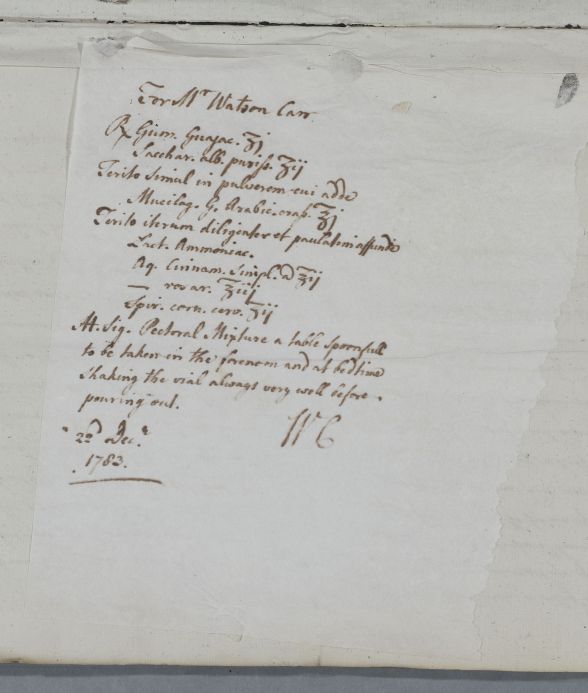 For Mr Watson Carr
℞ Gum. Guajac. ʒj
Sacchar. alb. puriss. ʒij
Terito simul in pulverem cui adde
Mucilag. G. Arabic. crass. ʒj
Terito iterum diligenter et paulatim affunde
Lact. Ammoniac.
Aq. Cinnam. Simpl. a ℥ij
— rosar. ℥iij
Spir. corn. cerv. ʒij
M. Sig. Pectoral Mixture a table spoonfull
to be taken in the forenoon and at bedtime
Shaking the vial always very well before
pouring out.
Wm C
22d Decr
1783.